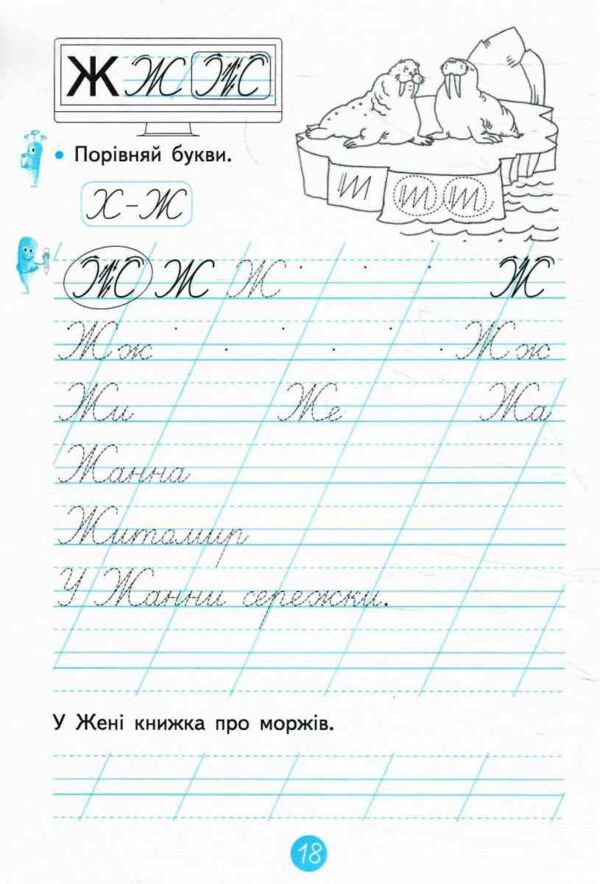 Ж Ж Ж
Порівняй букви.
Х-Ж
Ж Ж Ж Ж
Жж Жж
Жи Же Жа
Жанна
Житомир
У Жанни сережки.
У Жені книжка про моржів.
18